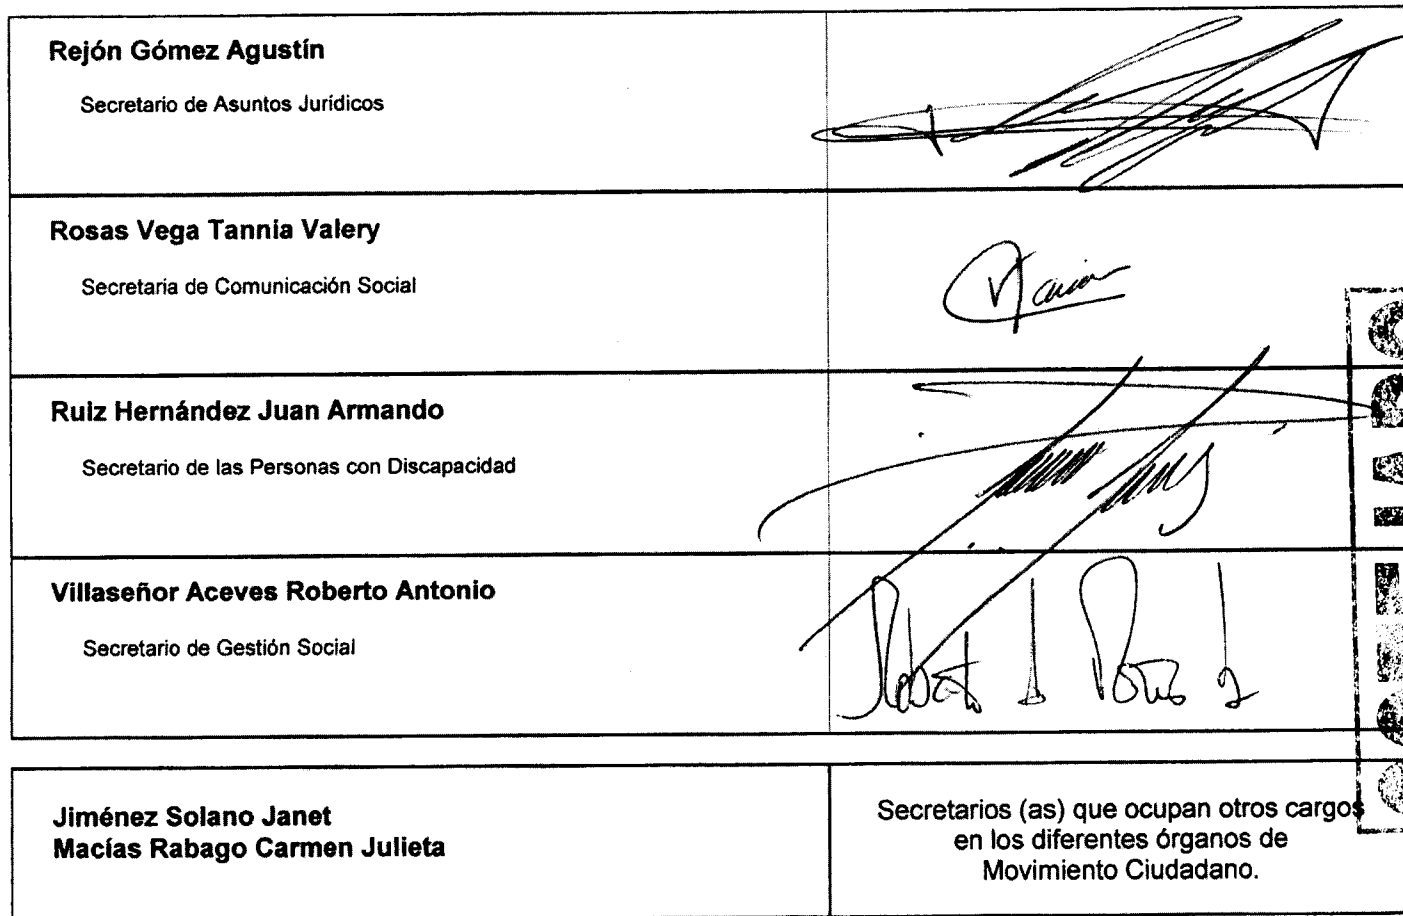 Rejón Gómez Agustín
Secretario de Asuntos Jurídicos
Rosas Vega Tannia Valery
Secretaria de Comunicación Social
Ruiz Hernández Juan Armando
Secretario de las Personas con Discapacidad
Villaseñor Aceves Roberto Antonio
Secretario de Gestión Social
Jiménez Solano Janet
Macías Rabago Carmen Julieta
Secretarios (as) que ocupan otros cargos
en los diferentes órganos de
Movimiento Ciudadano.